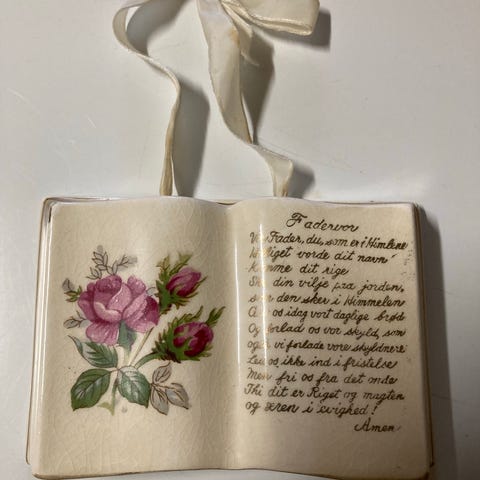 Fadervor
Vor Fader, du, som er i Himlene
Helliget vorde dit navn
Komme dit rige
Ske din vilje paa jorden,
som den sker i Himmelen
Giv os idag vort daglige brød
Og forlad os vor skyld, som
også vi forlade vore skyldnere
Leed os ikke ind i fristelse
Men fri os fra det onde
Thi dit er Riget og magten
og æren i evighed!
Amen